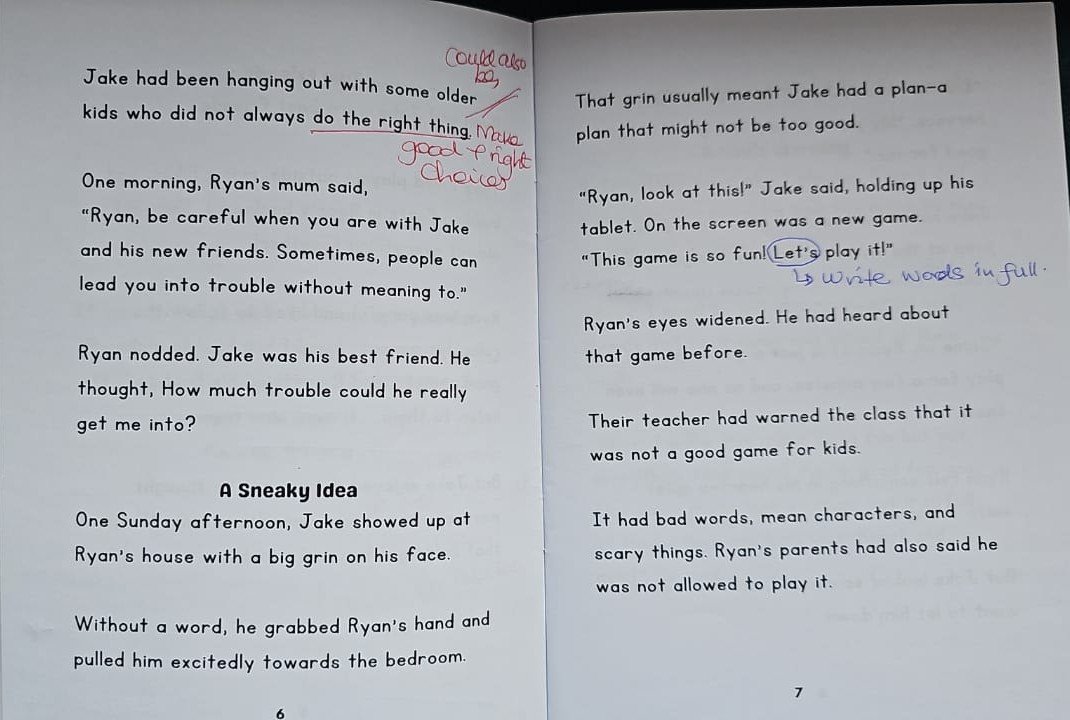 Could also
be,
Jake had been hanging out with some older
kids who did not always do the right thing. Make
good + right
choices
One morning, Ryan's mum said,
"Ryan, be careful when you are with Jake
and his new friends. Sometimes, people can
lead you into trouble without meaning to."
Ryan nodded. Jake was his best friend. He
thought, How much trouble could he really
get me into?
A Sneaky Idea
One Sunday afternoon, Jake showed up at
Ryan's house with a big grin on his face.
Without a word, he grabbed Ryan's hand and
pulled him excitedly towards the bedroom.
6
That grin usually meant Jake had a plan-a
plan that might not be too good.
"Ryan, look at this!" Jake said, holding up his
tablet. On the screen was a new game.
"This game is so fun! Let's play it!"
↳ Write words in full.
Ryan's eyes widened. He had heard about
that game before.
Their teacher had warned the class that it
was not a good game for kids.
It had bad words, mean characters, and
scary things. Ryan's parents had also said he
was not allowed to play it.
7